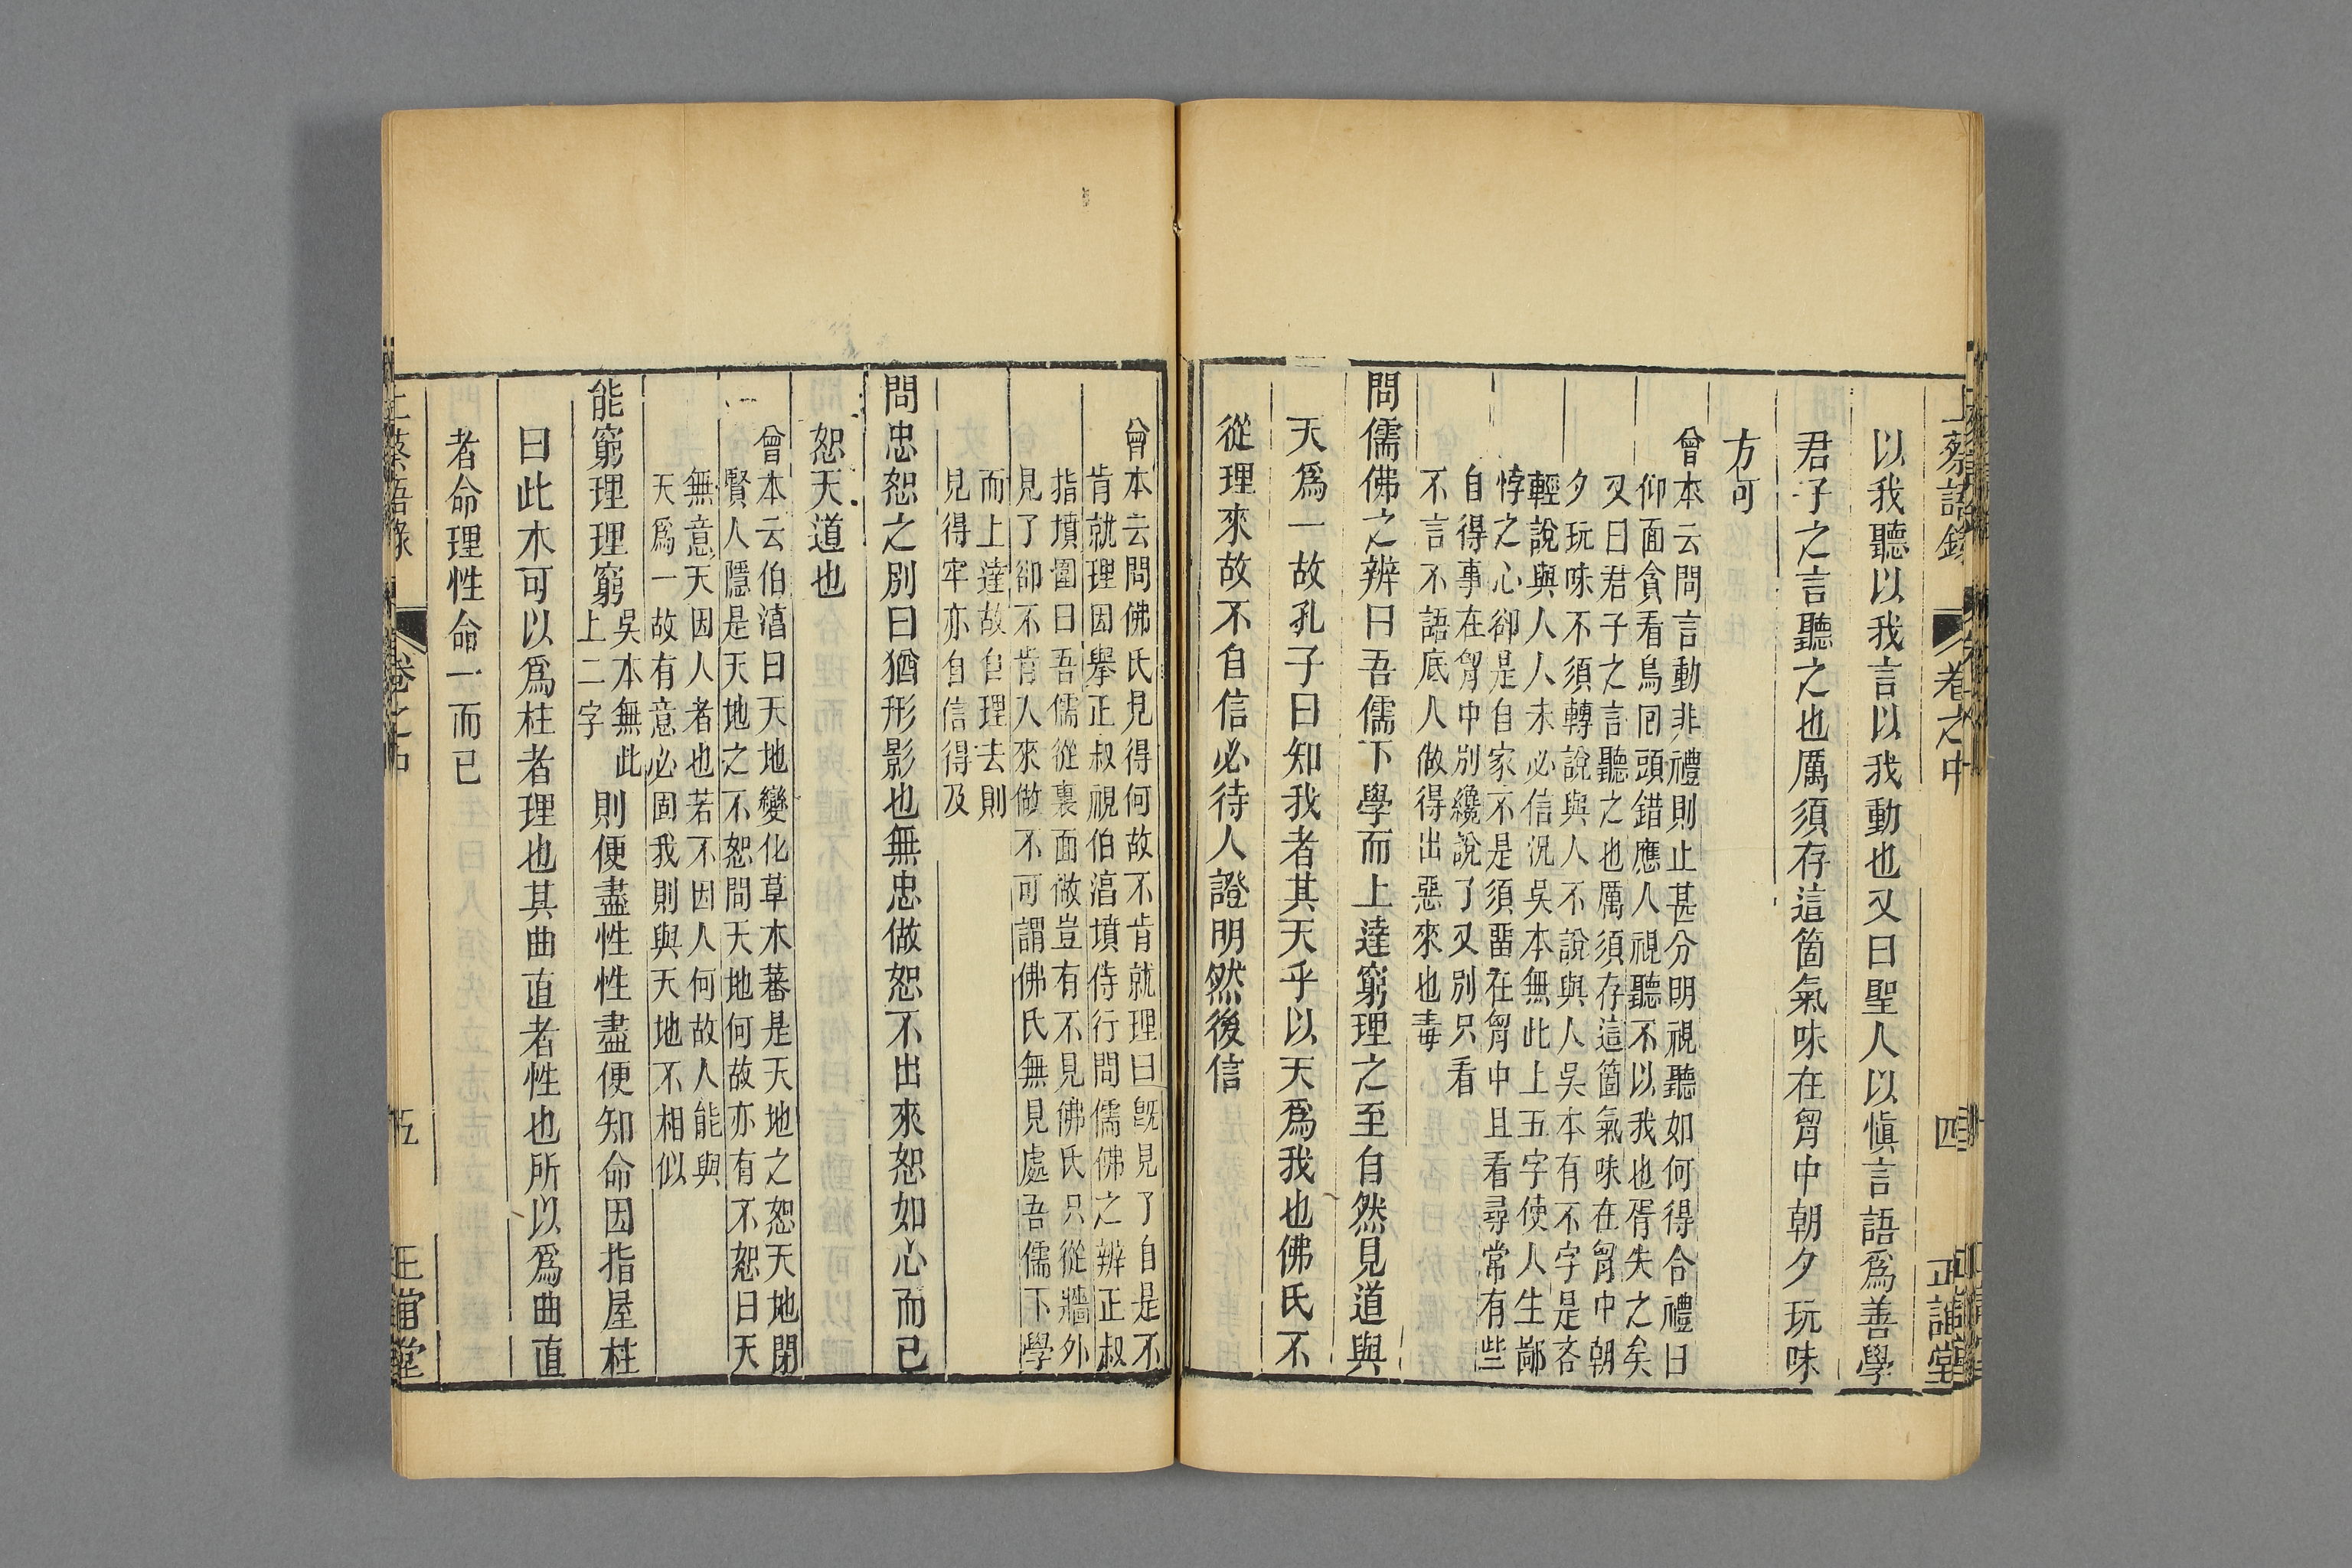 上蔡語錄 卷之中 四 正誼堂
以我聽以我言以我動也又曰聖人以愼言語爲善學
君子之言聽之也厲須存這箇氣味在胷中朝夕玩味
方可
曾本云問言動非禮則止甚分明視聽如何得合禮曰
仰面貪看鳥囘頭錯應人視聽不以我也胥失之矣
又曰君子之言聽之也厲須存這箇氣味在胷中朝
夕玩味不須轉說與人不說與人吳本有不字是吝
輕說與人人未必信況吳本無此上五字使人生鄙
悖之心卻是自家不是須畱在胷中且看尋常有些
自得事在胷中別纔說了又別只看
不言不語底人做得出惡來也毒
問儒佛之辨曰吾儒下學而上達窮理之至自然見道與
天爲一故孔子曰知我者其天乎以天爲我也佛氏不
從理來故不自信必待人證明然後信
曾本云問佛氏見得何故不肯就理曰旣見了自是不
肯就理因舉正叔視伯湻墳侍行問儒佛之辨正叔
指墳圍曰吾儒從裏面做豈有不見佛氏只從牆外
見了卻不肯入來做不可謂佛氏無見處吾儒下學
而上達故自理去則
見得牢亦自信得及
問忠恕之別曰猶形影也無忠做恕不出來恕如心而已
恕天道也
曾本云伯湻曰天地變化草木蕃是天地之恕天地閉
賢人隱是天地之不恕問天地何故亦有不恕曰天
無意天因人者也若不因人何故人能與
天爲一故有意必固我則與天地不相似
能窮理理窮吳本無此上二字則便盡性性盡便知命因指屋柱
曰此木可以爲柱者理也其曲直者性也所以爲曲直
者命理性命一而已
上蔡語錄 卷之中 五 正誼堂